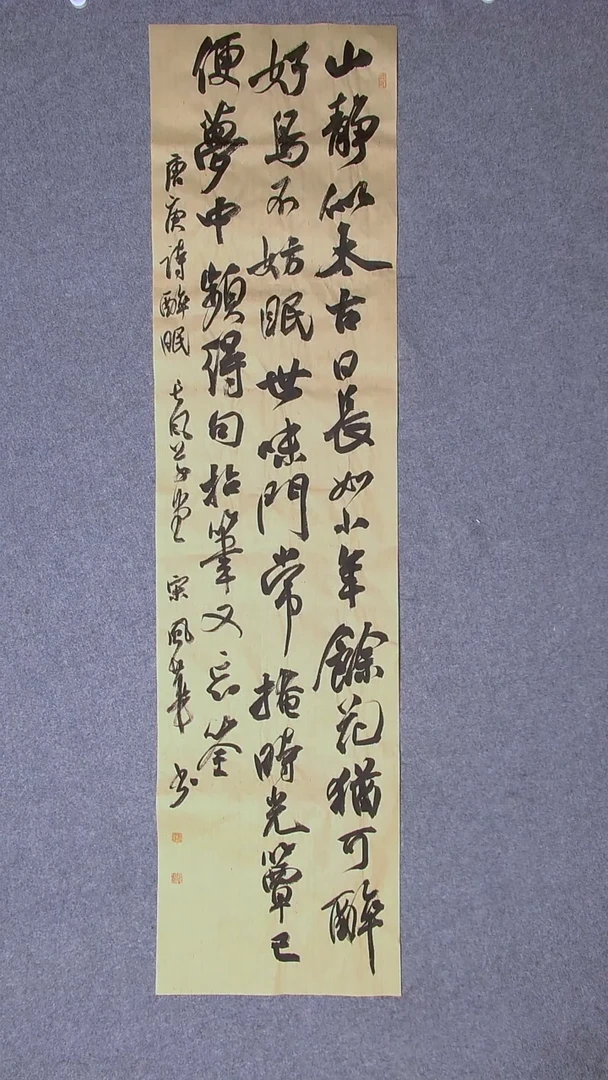 山靜似太古日長如小年餘花猶可醉
好鳥不妨眠世味門常掩時光簟已
便夢中頻得句拈筆又忘筌
唐庚詩醉眠 宋風 书